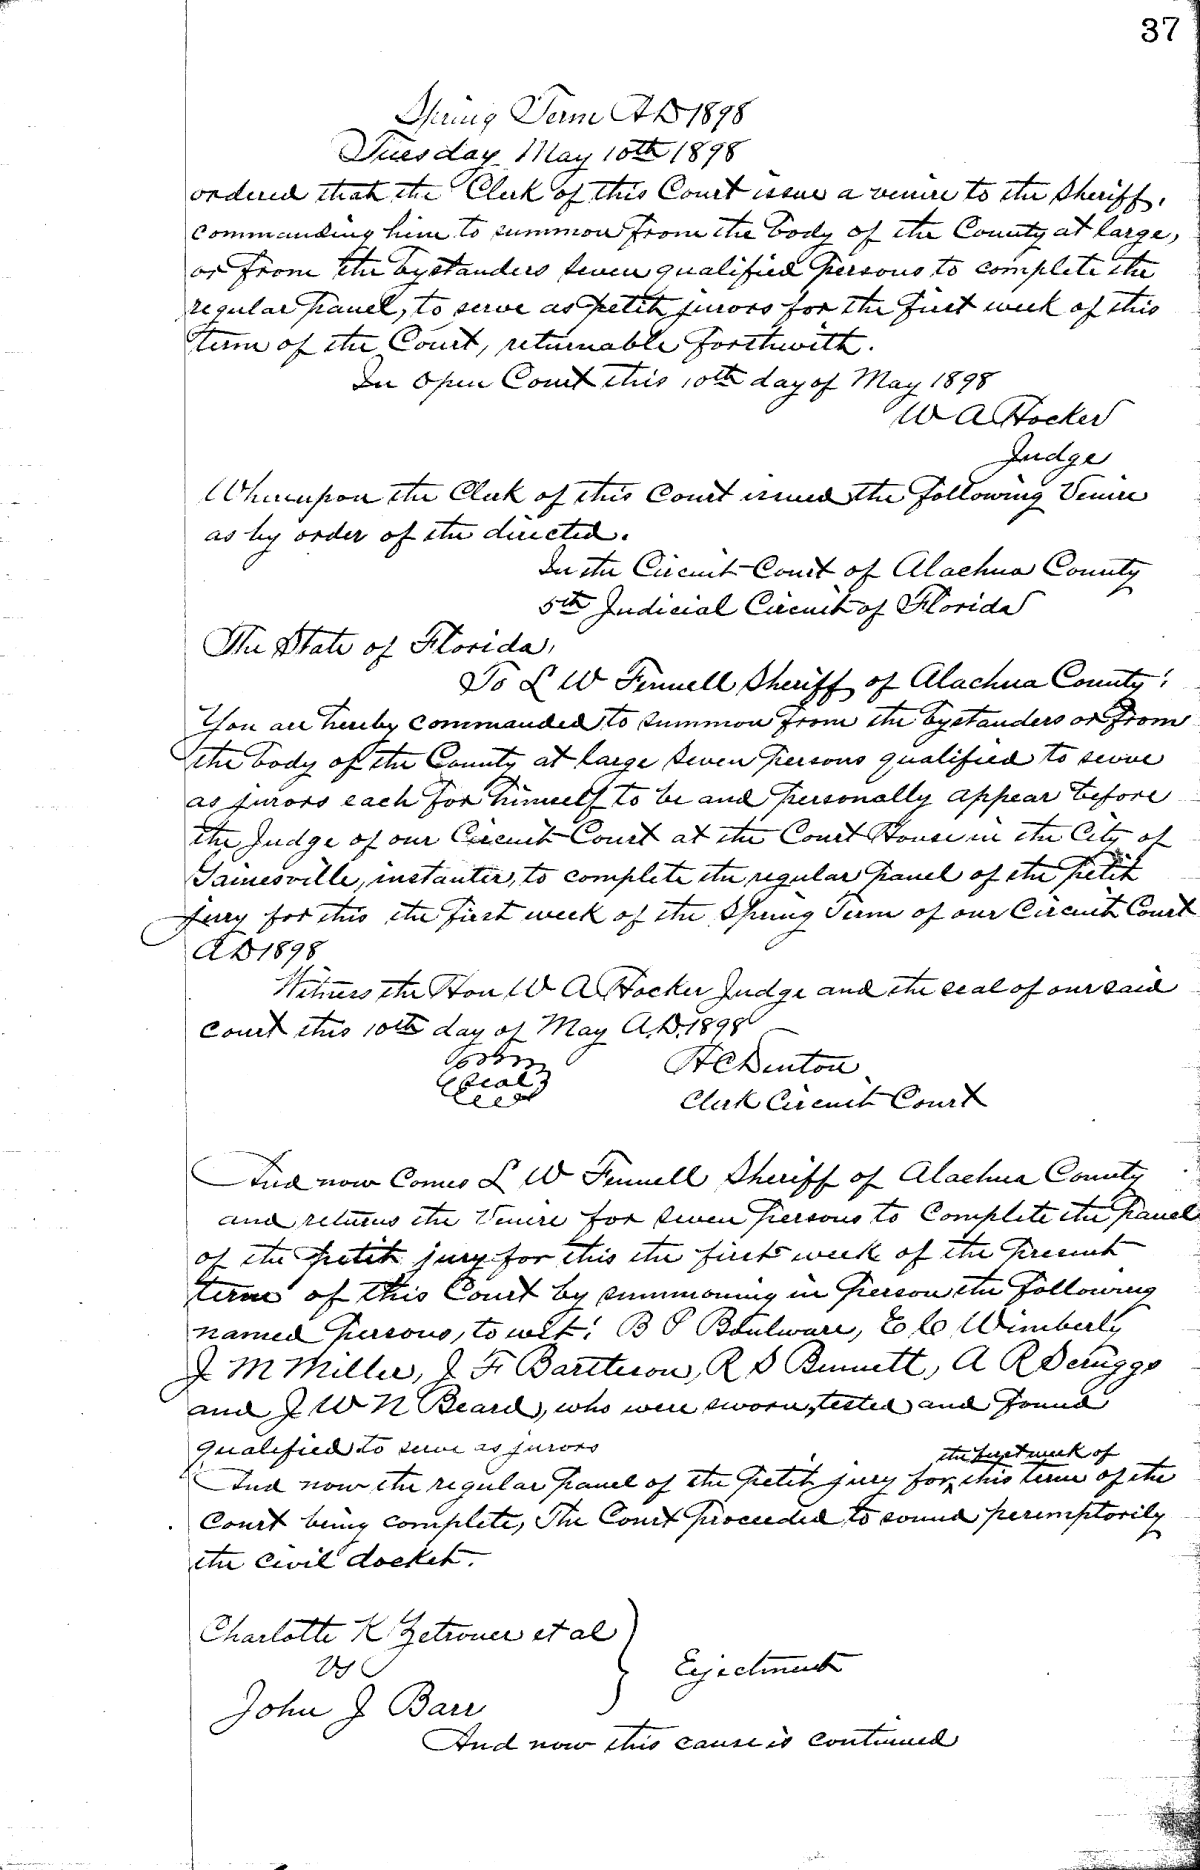 37
Spring Term A D 1898
Tuesday May 10th 1898
ordered that the Clerk of this Court issue a venire to the Sheriff,
commanding him to summon from the body of the County at large,
or from the bystanders seven qualified persons to complete the
regular panel, to serve as petit jurors for the first week of this
term of the Court, returnable forthwith.
In open Court this 10th day of May 1898
W A Hocker
Judge
Whereupon the Clerk of this Court issued the following Venire
as by order of the directed.
In the Circuit Court of Alachua County
5th Judicial Circuit of Florida
The State of Florida,
To L W Fennell Sheriff of Alachua County:
You are hereby commanded to summon from the bystanders or from
the body of the County at large seven persons qualified to serve
as jurors each for himself to be and personally appear before
the Judge of our Circuit Court at the Court House in the City of
Gainesville, instanter, to complete the regular panel of the petit
jury for this the first week of the Spring Term of our Circuit Court
A D 1898
Witness the Hon W A Hocker Judge and the seal of our said
court this 10th day of May A.D. 1898
Seal
H C Denton
Clerk Circuit Court
And now Comes L W Fennell Sheriff of Alachua County
and returns the Venire for seven persons to complete the panel
of the petit jury for this the first week of the present
term of this Court by summoning in person the following
named persons, to wit: B P Boulware, E C Wimberly
J M Miller, J F Bartleson, R S Bennett, A R Scruggs
and J W N Beard, who were sworn, tested and found
qualified to serve as jurors
the first week of
And now the regular panel of the petit jury for ^ this term of the
Court being complete, The Court proceeded to sound peremptorily
the civil docket.
Charlotte K Zetrouer et al
vs
Ejectment
John J Barr
And now this cause is continued